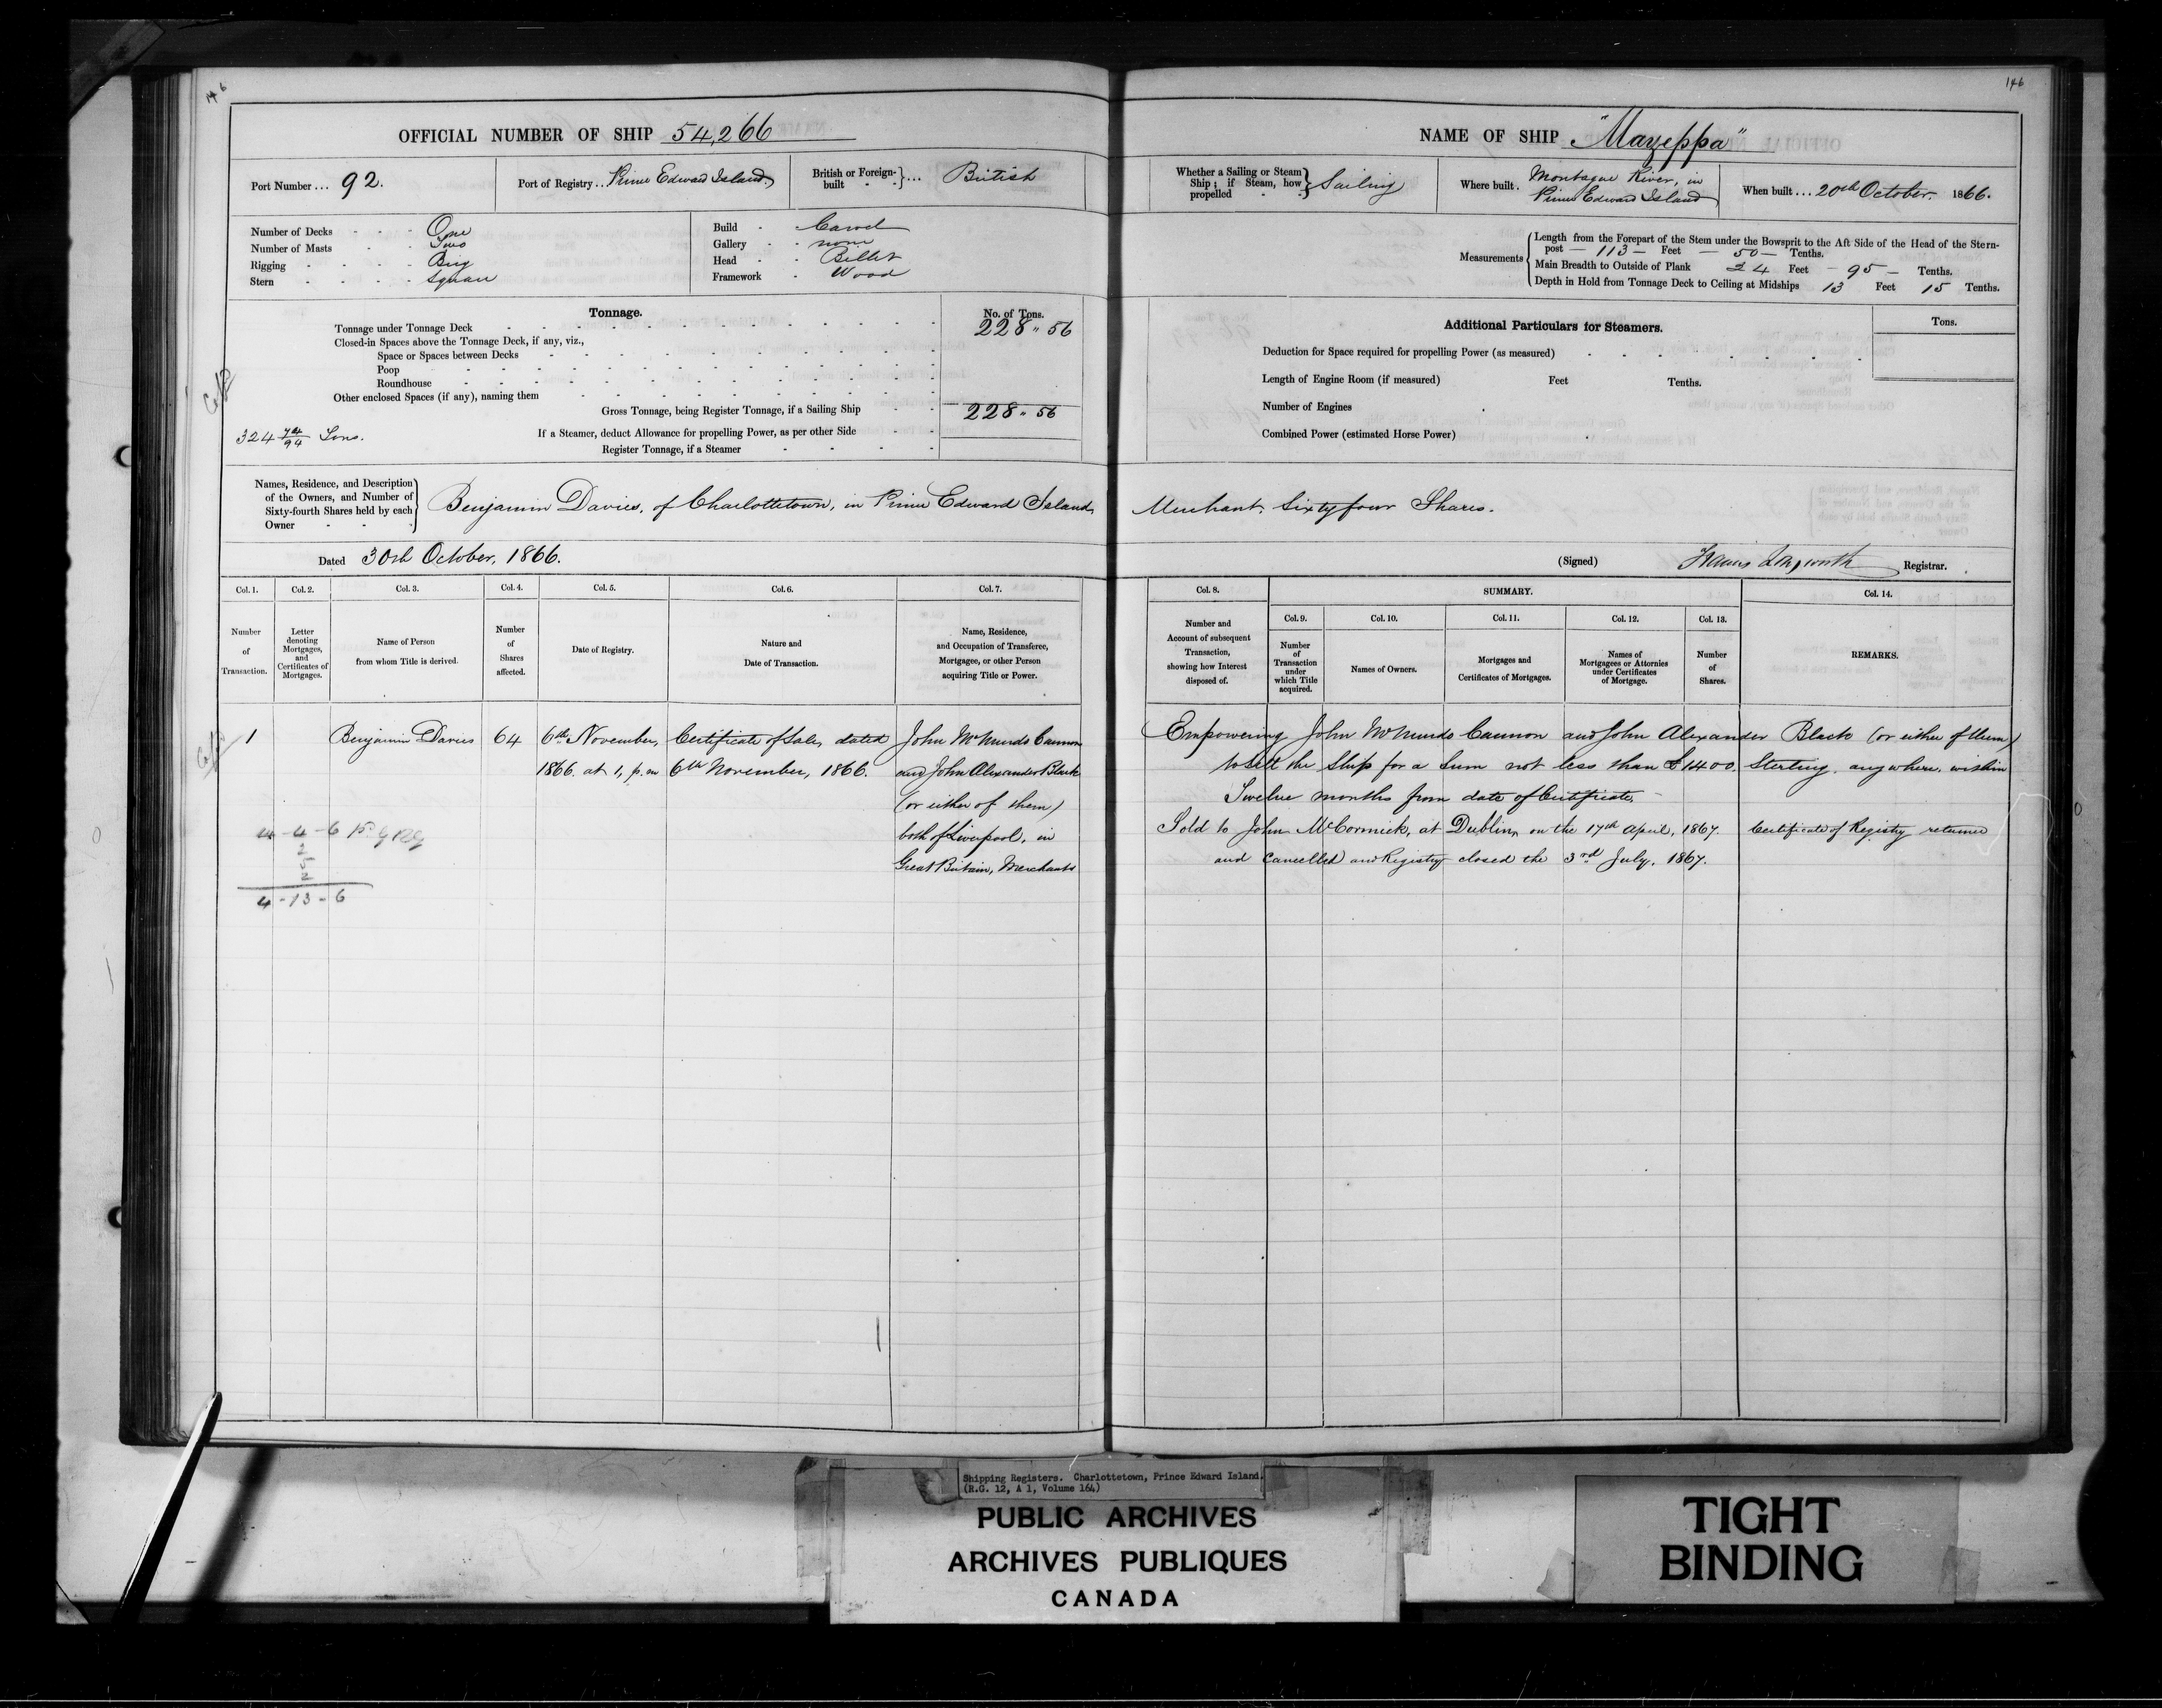 146
OFFICIAL NUMBER OF SHIP 54,266
Port Number ... 92.
Port of Registry .. Prince Edward Island.
British or Foreign-built } ... British
Number of Decks - - - One
Number of Masts - - Two
Rigging - - - - Brig
Stern - - - - Square
Build - Carvel
Gallery - - none
Head - - Billet
Framework - Wood
Tonnage.
No. of Tons.
Tonnage under Tonnage Deck 228 " 56
Closed-in Spaces above the Tonnage Deck, if any, viz.,
Space or Spaces between Decks
Poop
Roundhouse
Other enclosed Spaces (if any), naming them
Gross Tonnage, being Register Tonnage, if a Sailing Ship 228 " 56
324 74/94 Tons.
If a Steamer, deduct Allowance for propelling Power, as per other Side
Register Tonnage, if a Steamer
Names, Residence, and Description
of the Owners, and Number of
Sixty-fourth Shares held by each
Owner
Benjamin Davies, of Charlottetown, in Prince Edward Island,
Dated 30th October, 1866.
Col. 1. Col. 2. Col. 3. Col. 4. Col. 5. Col. 6. Col. 7.
Number of Transaction.
Letter denoting Mortgages, and Certificates of Mortgages.
Name of Person from whom Title is derived.
Number of Shares affected.
Date of Registry.
Nature and Date of Transaction.
Name, Residence, and Occupation of Transferee, Mortgagee, or other Person acquiring Title or Power.
1 Benjamin Davies 64 6th November, Certificate of Sale, dated John McMurdo Cannon
1866 at 1, p.m 6th November, 1866. and John Alexander Black
(or either of them)
both of Liverpool, in
Great Britain, Merchants
4 - 4 - 6
2
5
2
4 - 13 - 6
146
NAME OF SHIP "Mazeppa"
Whether a Sailing or Steam Ship; if Steam, how propelled } Sailing
Where built . Montague River, in Prince Edward Island
When built ... 20th October. 1866.
Measurements
Length from the Forepart of the Stem under the Bowsprit to the Aft Side of the Head of the Stern-
post — 113 — Feet — 50 — Tenths.
Main Breadth to Outside of Plank 24 Feet - 95 - Tenths.
Depth in Hold from Tonnage Deck to Ceiling at Midships 13 Feet 15 Tenths.
Additional Particulars for Steamers.
Tons.
Deduction for Space required for propelling Power (as measured)
Length of Engine Room (if measured) Feet Tenths.
Number of Engines
Combined Power (estimated Horse Power)
Merchant. Sixty four Shares.
(Signed) Francis Longworth Registrar.
Col. 8. SUMMARY. Col. 14.
Col. 9. Col. 10. Col. 11. Col. 12. Col. 13.
Number and Account of subsequent Transaction, showing how Interest disposed of.
Number of Transaction under which Title acquired.
Names of Owners.
Mortgages and Certificates of Mortgages.
Names of Mortgagees or Attornies under Certificates of Mortgage.
Number of Shares.
REMARKS.
Empowering John McMurdo Cannon and John Alexander Black (or either of them)
to sell the Ship for a sum not less than £1400. Sterling. anywhere. within
Twelve months from date of Certificate.
Sold to John McCormick, at Dublin, on the 17th April, 1867. Certificate of Registry returned
and Cancelled and Registry closed the 3rd July, 1867.
Shipping Registers. Charlottetown, Prince Edward Island.
(R.G. 12, A 1, Volume 164)
PUBLIC ARCHIVES
ARCHIVES PUBLIQUES
CANADA
TIGHT
BINDING